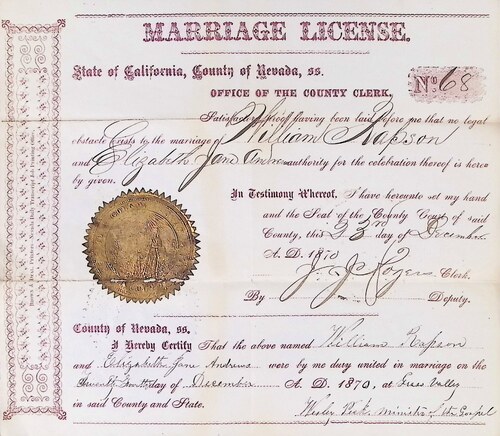 MARRIAGE LICENSE.
State of California, County of Nevada, ss.
OFFICE OF THE COUNTY CLERK.
No 68
Satisfactory Proof having been laid before me that no legal
obstacle Exists to the marriage of William Rapson
and Elizabeth Jane Andrews authority for the celebration thereof is here
by given.
In Testimony Whereof, I have hereunto set my hand
and the Seal of the County Court of said
County, this 23rd day of December
A. D. 1870
J. J. Rogers Clerk.
By Deputy.
County of Nevada, ss.
I Hereby Certify That the above named William Rapson
and Elizabeth Jane Andrews were by me duly united in marriage on the
day of December A. D. 1870, at Grass Valley
in said County and State.
Wesley Peck Minister of the Gospel